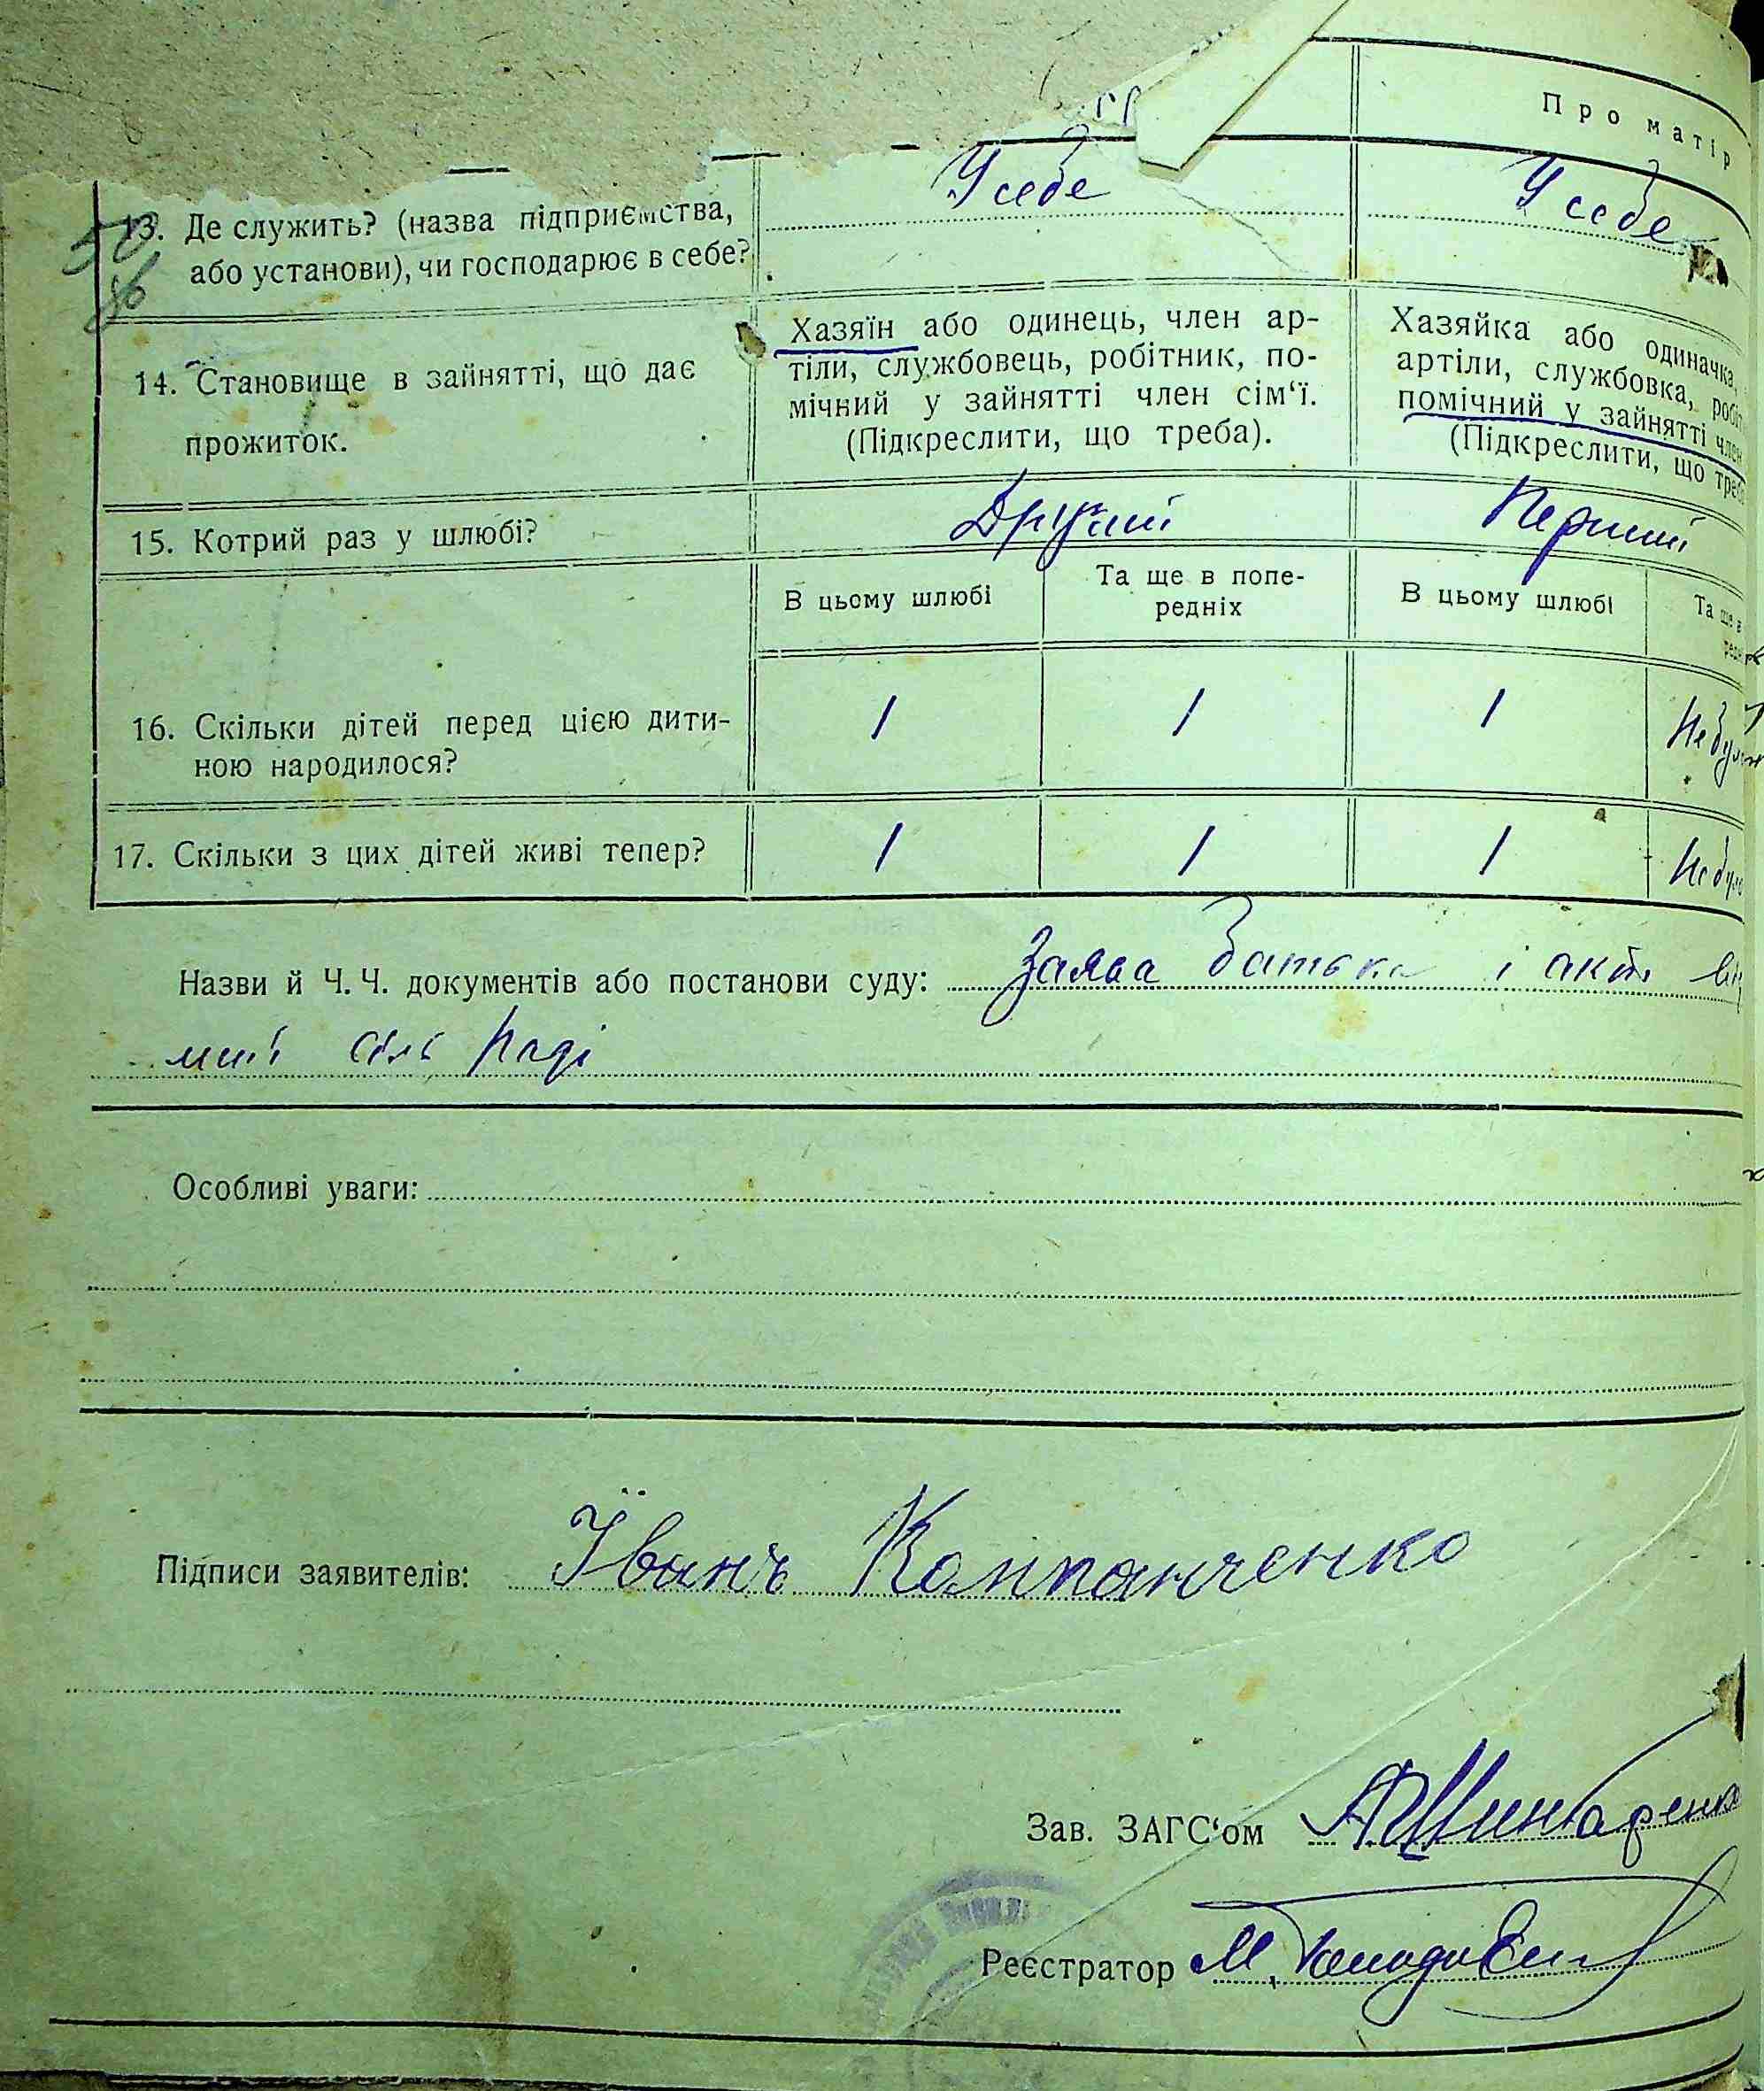 Про матір
13. Де служить? (назва підприємства, або установи), чи господарює в себе?
У себе
У себе
14. Становище в зайнятті, що дає прожиток.
Хазяїн або одинець, член ар-
тіли, службовець, робітник, по-
мічний у зайнятті член сім'ї.
(Підкреслити, що треба).
Хазяйка або одиначка,
артіли, службовка, робіт
помічний у зайнятті член
(Підкреслити, що треба
15. Котрий раз у шлюбі?
Другий
Перший
В цьому шлюбі
Та ще в попе-
редніх
В цьому шлюбі
Та ще в
16. Скільки дітей перед цією дити-
ною народилося?
1
1
1
Не було
17. Скільки з цих дітей живі тепер?
1
1
1
Не було
Назви й Ч. Ч. документів або постанови суду: Заява батька і акт
сіль Раді
Особливі уваги:
Підписи заявителів: Іванъ Компанченко
Зав. ЗАГС'ом
Реєстратор М.